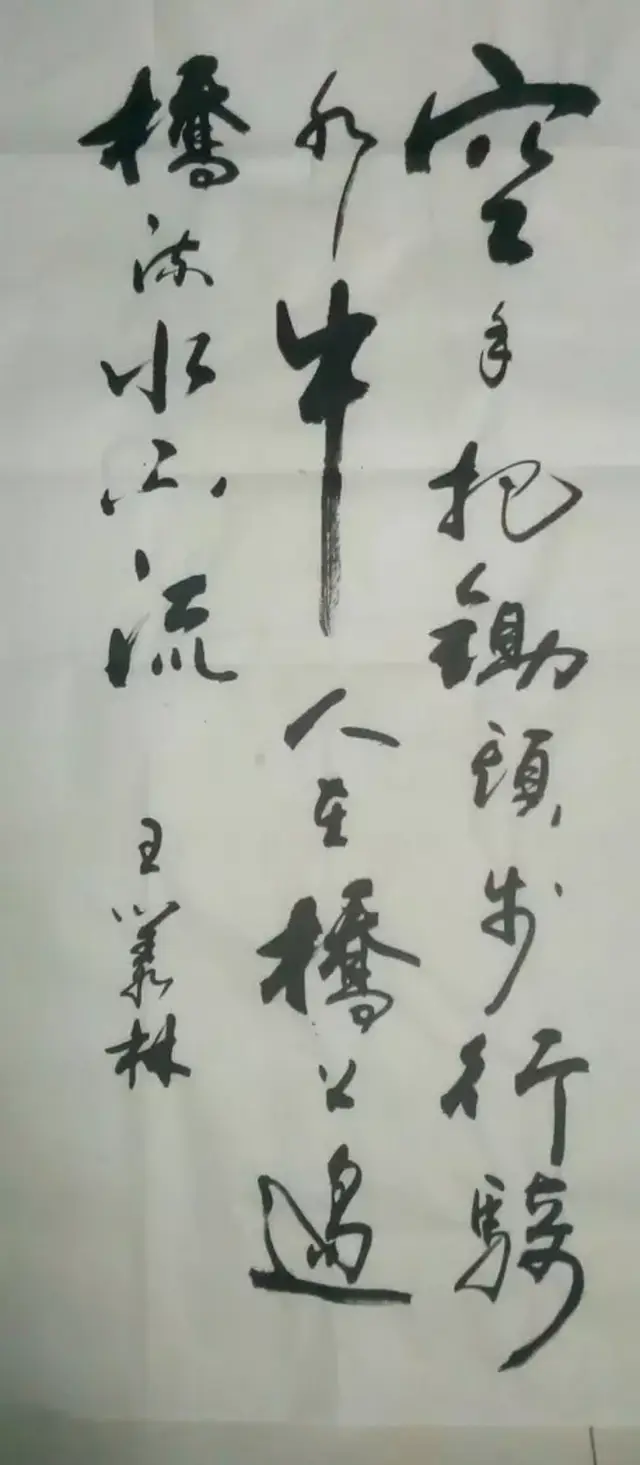 空手把鋤頭步行騎
水牛人在橋上過
橋流水不流
王叢林